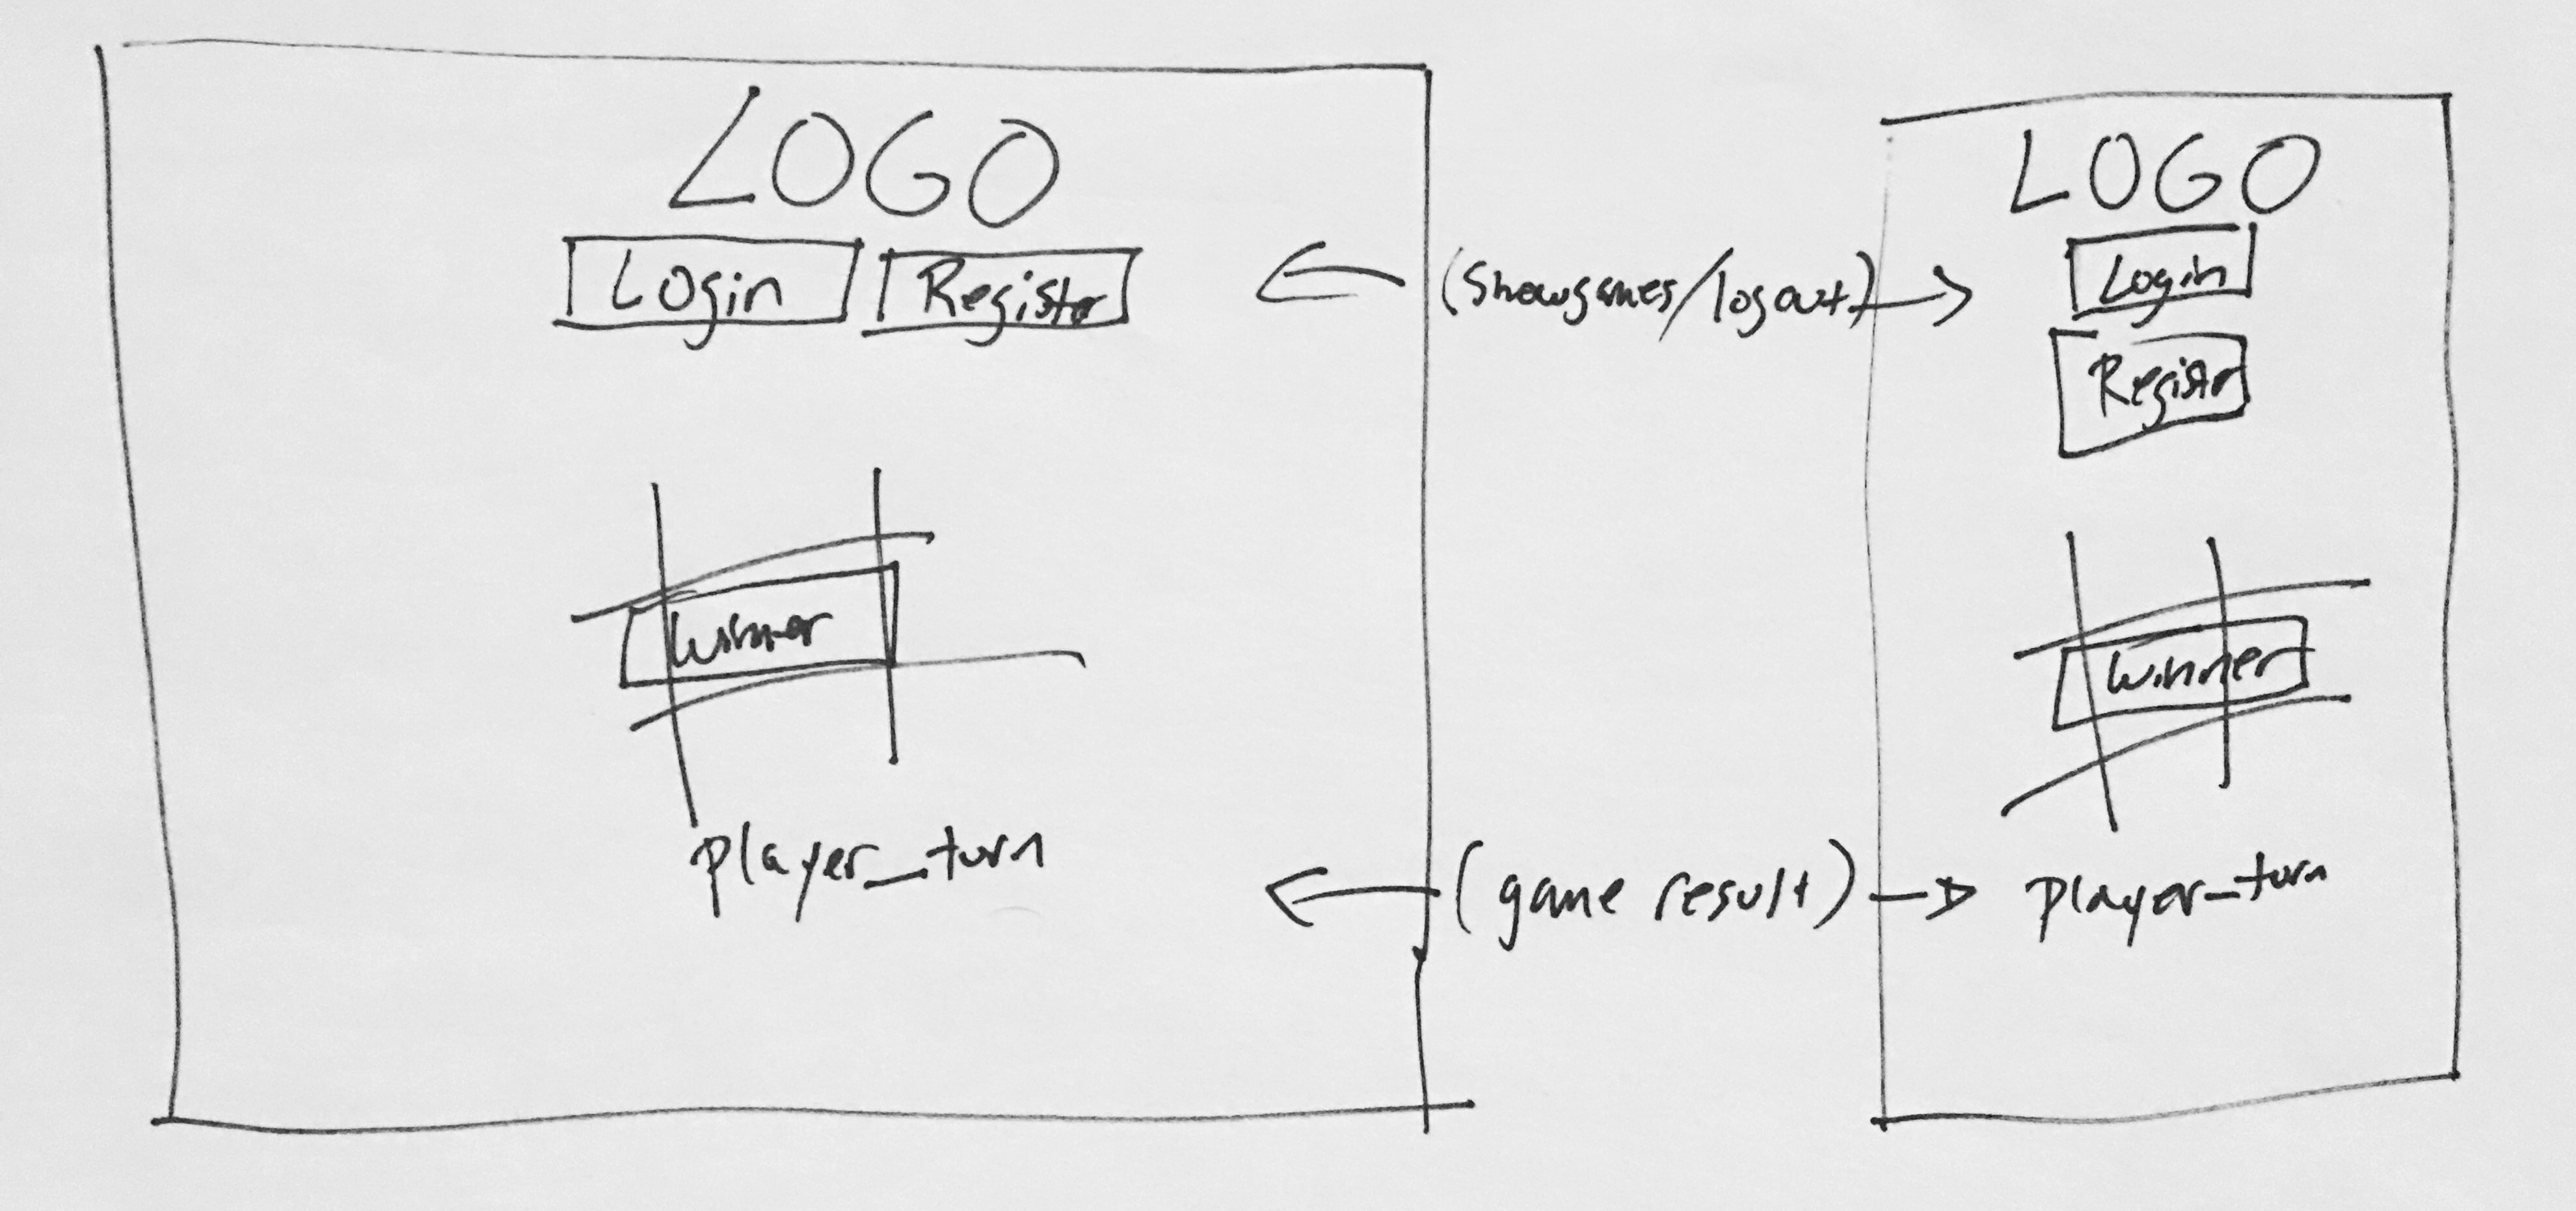 LOGO
Login
Register
winner
player_turn
(showgames/logout)
(game result)
LOGO
Login
Register
winner
player_turn